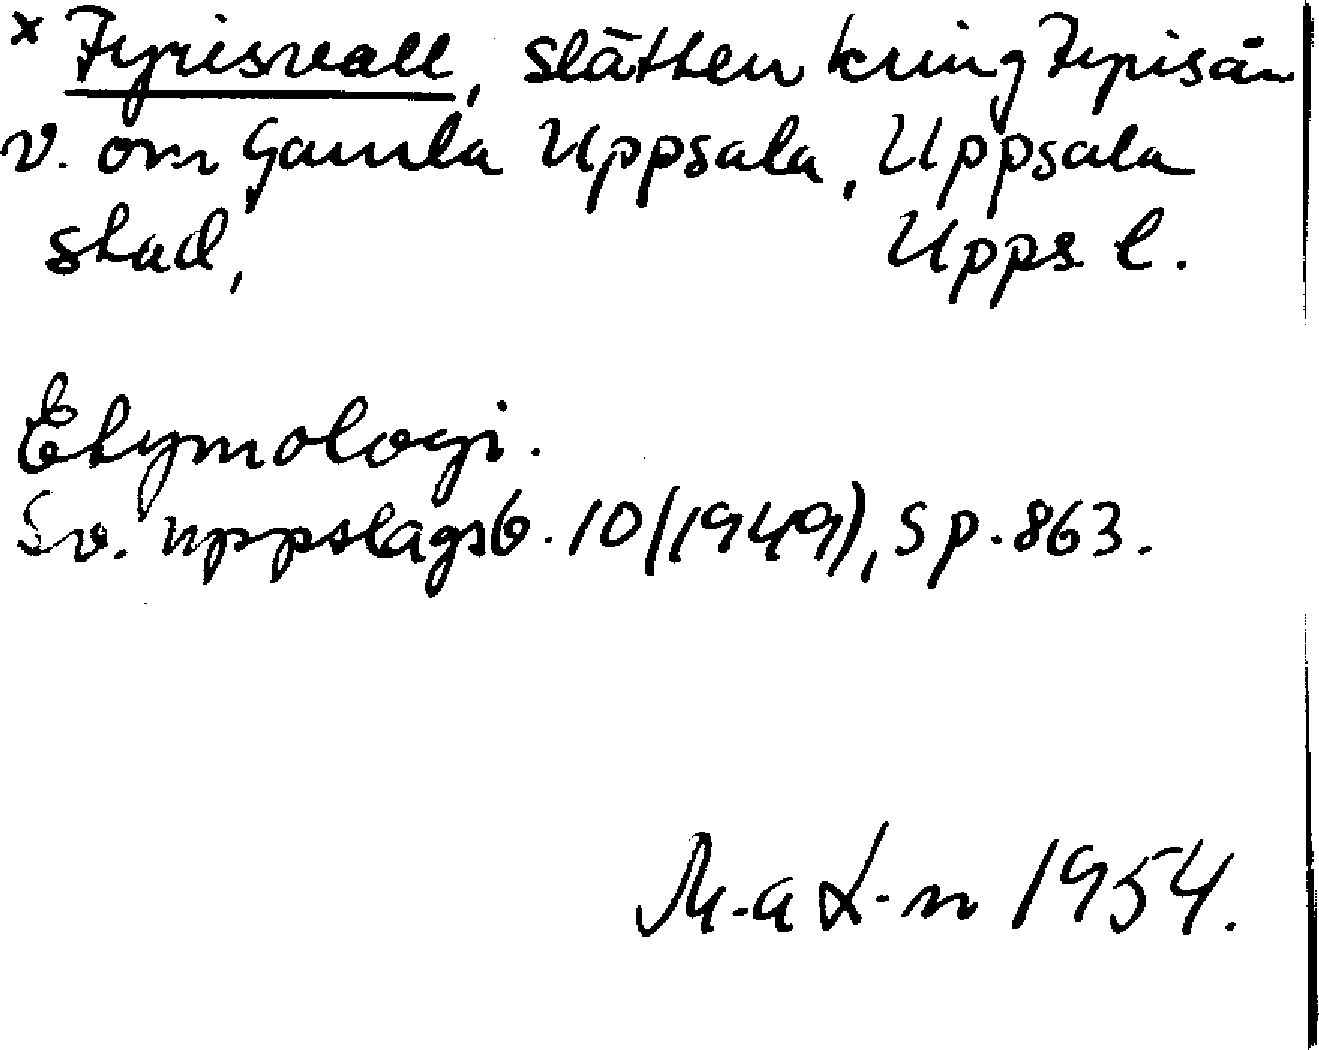 × Fyrisvall, slätten kring Fyrisån
v. om Gamla Uppsala, Uppsala
stad, Upps l.
Etymologi.
Sv. uppslagsb. 10 (1949), sp. 863.
M-a L-n 1954.